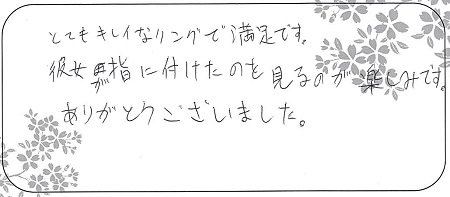 とてもキレイなリングで満足です。
彼女が指に付けたのを見るのが楽しみです。
ありがとうございました。